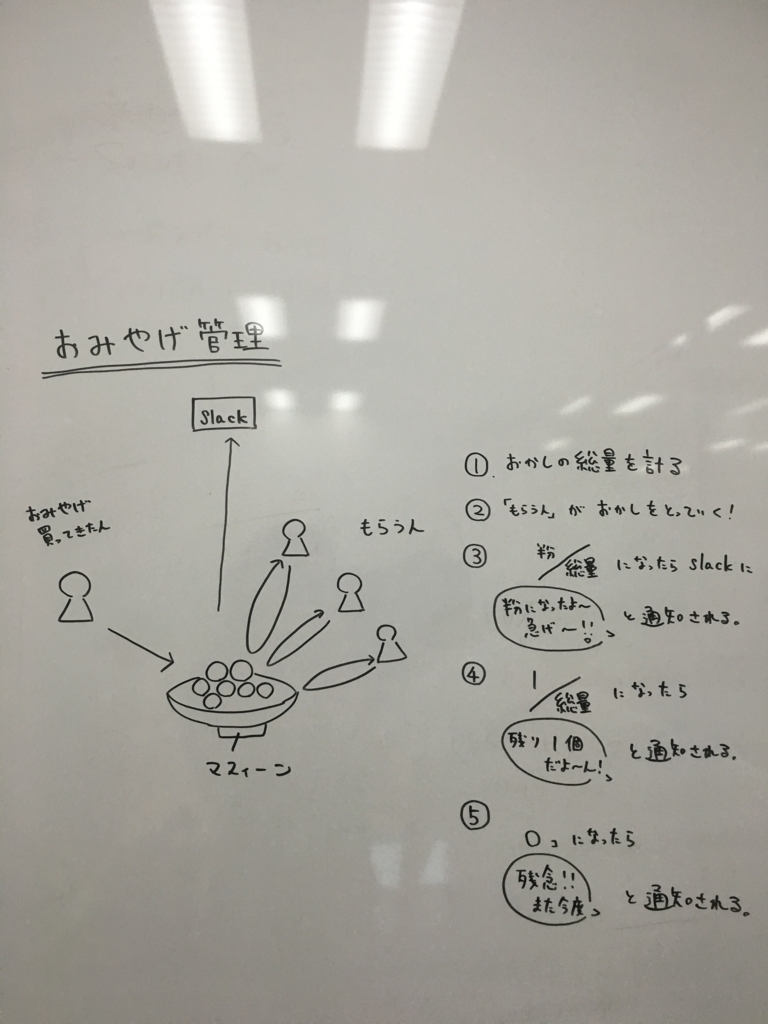 おみやげ管理
slack
おみやげ
買ってきたん
もらうん
マスィーン
① おかしの総量を計る
② 「もらうん」が おかしをとっていく!
③ 半分/総量 になったら slackに
半分になったよ〜
急げ〜!!
と通知される。
④ 1/総量 になったら
残り1個
だよ〜ん!
と通知される。
⑤
0コになったら
残念!!
また今度
と通知される。